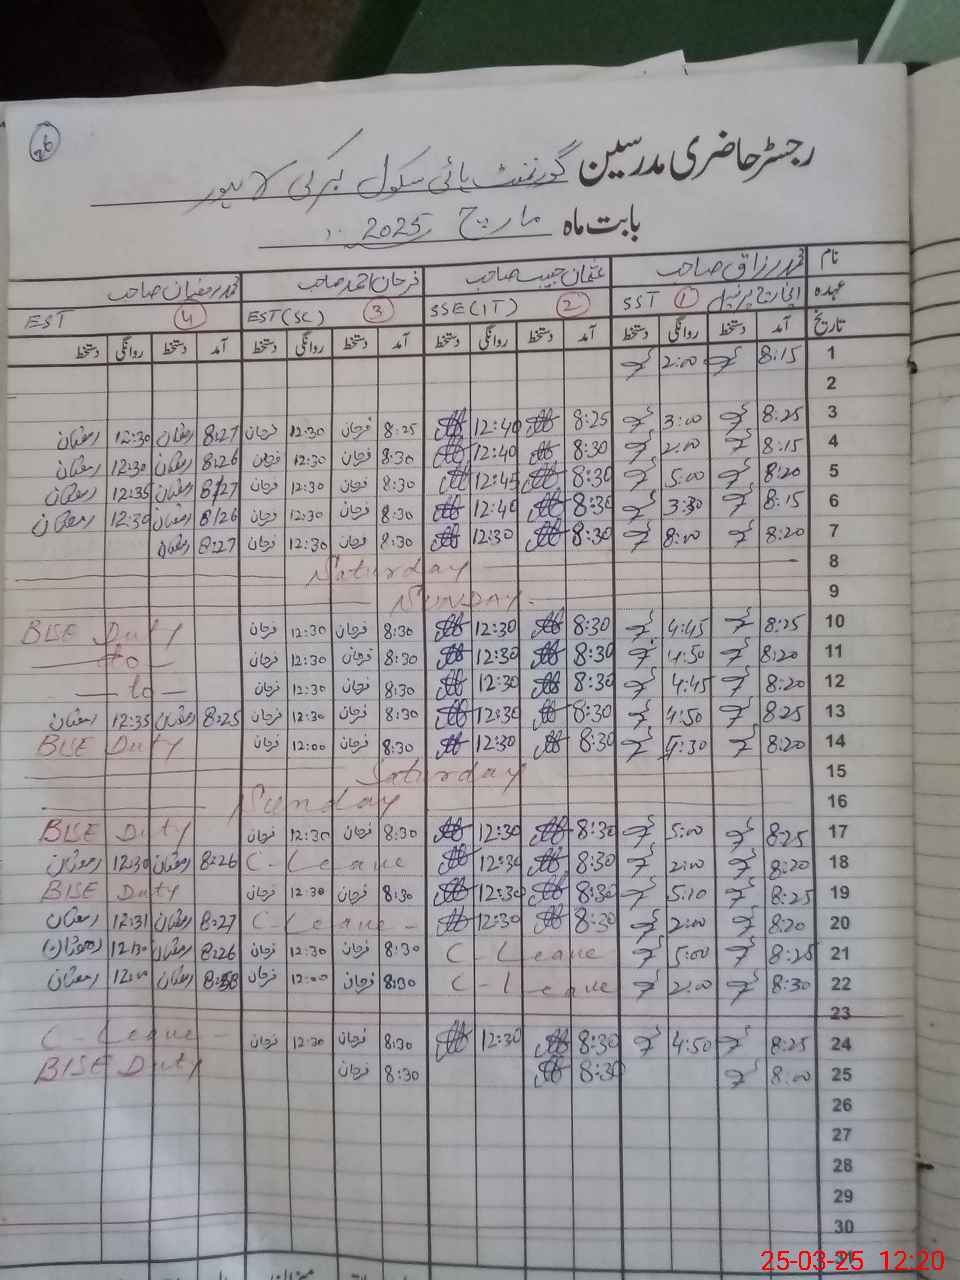 26
رجسٹر حاضری مدرسین گورنمنٹ ہائی سکول لاہور
بابت ماہ مارچ 2025
نام محمد رزاق صاحب عثمان حبیب صاحب فرحان احمد صاحب محمد رمضان صاحب
عہدہ انچارج پرنسپل SST 1 SSE(IT) 2 EST(SC) 3 EST 4
تاریخ آمد دستخط روانگی دستخط آمد دستخط روانگی دستخط آمد دستخط روانگی دستخط آمد دستخط روانگی دستخط
1 8:15 2:00
2
3 8:25 3:00 8:25 12:40 8:25 فرحان 12:30 فرحان 8:27 رمضان 12:30 رمضان
4 8:15 2:00 8:30 12:40 8:30 فرحان 12:30 فرحان 8:26 رمضان 12:30 رمضان
5 8:20 5:00 8:30 12:45 8:30 فرحان 12:30 فرحان 8:27 رمضان 12:35 رمضان
6 8:15 3:30 8:30 12:40 8:30 فرحان 12:30 فرحان 8:26 رمضان 12:30 رمضان
7 8:20 8:00 8:30 12:30 8:30 فرحان 12:30 فرحان 8:27 رمضان
8 Saturday
9 SUNDAY
10 8:25 4:45 8:30 12:30 8:30 فرحان 12:30 فرحان BISE Duty
11 8:20 4:50 8:30 12:30 8:30 فرحان 12:30 فرحان — to —
12 8:20 4:45 8:30 12:30 8:30 فرحان 12:30 فرحان — to —
13 8:25 4:50 8:30 12:30 8:30 فرحان 12:30 فرحان 8:25 رمضان 12:35 رمضان
14 8:20 4:30 8:30 12:30 8:30 فرحان 12:00 فرحان BISE Duty
15 Saturday
16 Sunday
17 8:25 5:00 8:30 12:30 8:30 فرحان 12:30 فرحان BISE Duty
18 8:20 2:00 8:30 12:30 C-Leave 8:26 رمضان 12:30 رمضان
19 8:25 5:10 8:30 12:30 8:30 فرحان 12:30 فرحان BISE Duty
20 8:20 2:00 8:30 12:30 C-Leave - 8:27 رمضان 12:31 رمضان
21 8:25 5:00 C-Leave 8:30 فرحان 12:30 فرحان 8:26 رمضان 12:30 رمضان
22 8:30 2:00 C-Leave 8:30 فرحان 12:00 فرحان رمضان 12:00 رمضان
23
24 8:25 4:50 8:30 12:30 8:30 فرحان 12:30 فرحان C-Leave -
25 8:00 8:30 8:30 فرحان BISE Duty
26
27
28
29
30
31
25-03-25 12:20